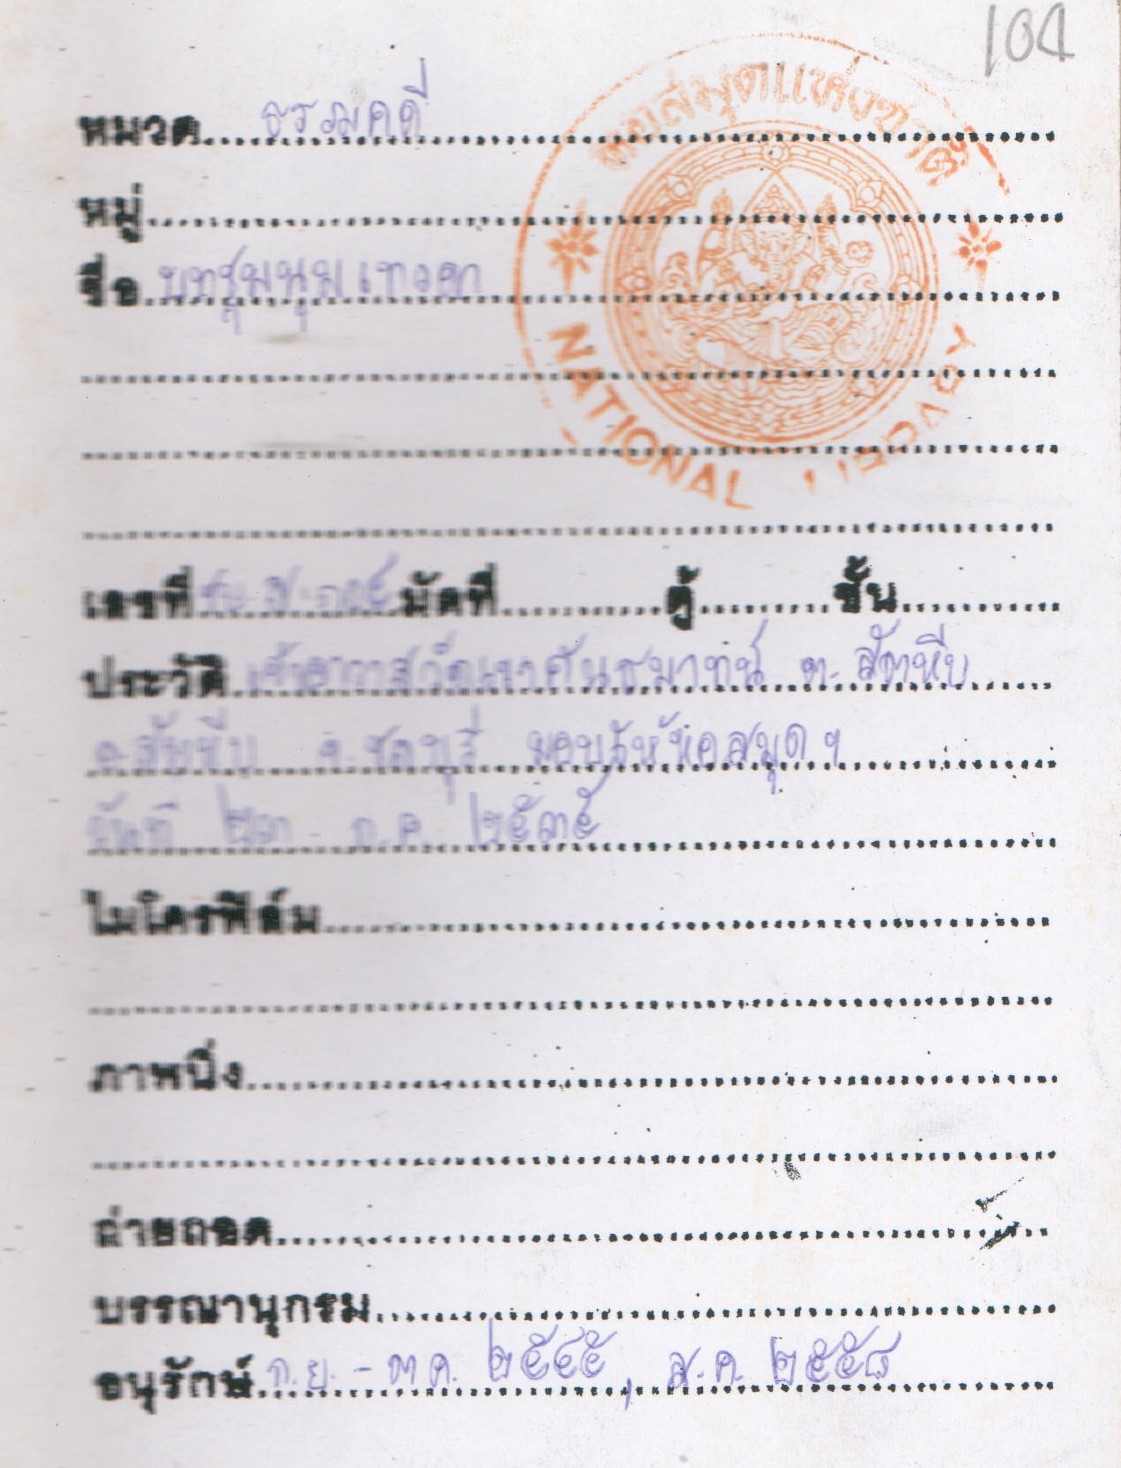 104
หอสมุดแห่งชาติ
NATIONAL LIBRARY
หมวด ธรรมคดี
หมู่
ชื่อ บทชุมนุมเทวดา
เลขที่ มัดที่ ตู้ ชั้น
ประวัติ เจ้าอาวาสวัดเขาคันธมาทน์ ต. สัตหีบ
อ.สัตหีบ จ.ชลบุรี มอบให้หอสมุดฯ
วันที่ ๒๓ ก.ค. ๒๕๓๕
ไมโครฟิล์ม
ภาพนิ่ง
ถ่ายถอด
บรรณานุกรม
อนุรักษ์ ก.ย. - ต.ค. ๒๕๔๕, ส.ค. ๒๕๕๘